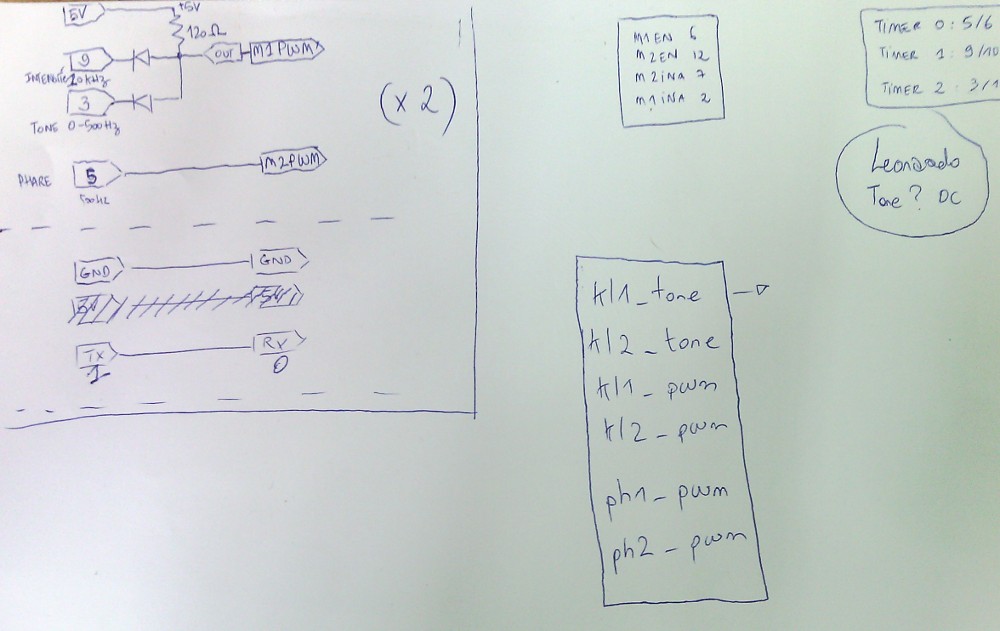 5V
+5V
120Ω
9
OUT
M1PWM
20kHz
3
TONE 0-500Hz
(x 2)
PHARE
5
M2PWM
500Hz
GND
GND
5V
TX
RX
1
0
M1EN 6
M2EN 12
M2INA 7
M1INA 2
TIMER 0 : 5/6
TIMER 1 : 9/10
TIMER 2 : 3/1
Leonardo
Tone? DC
kl1_tone
kl2_tone
kl1_pwm
kl2_pwm
ph1_pwm
ph2_pwm